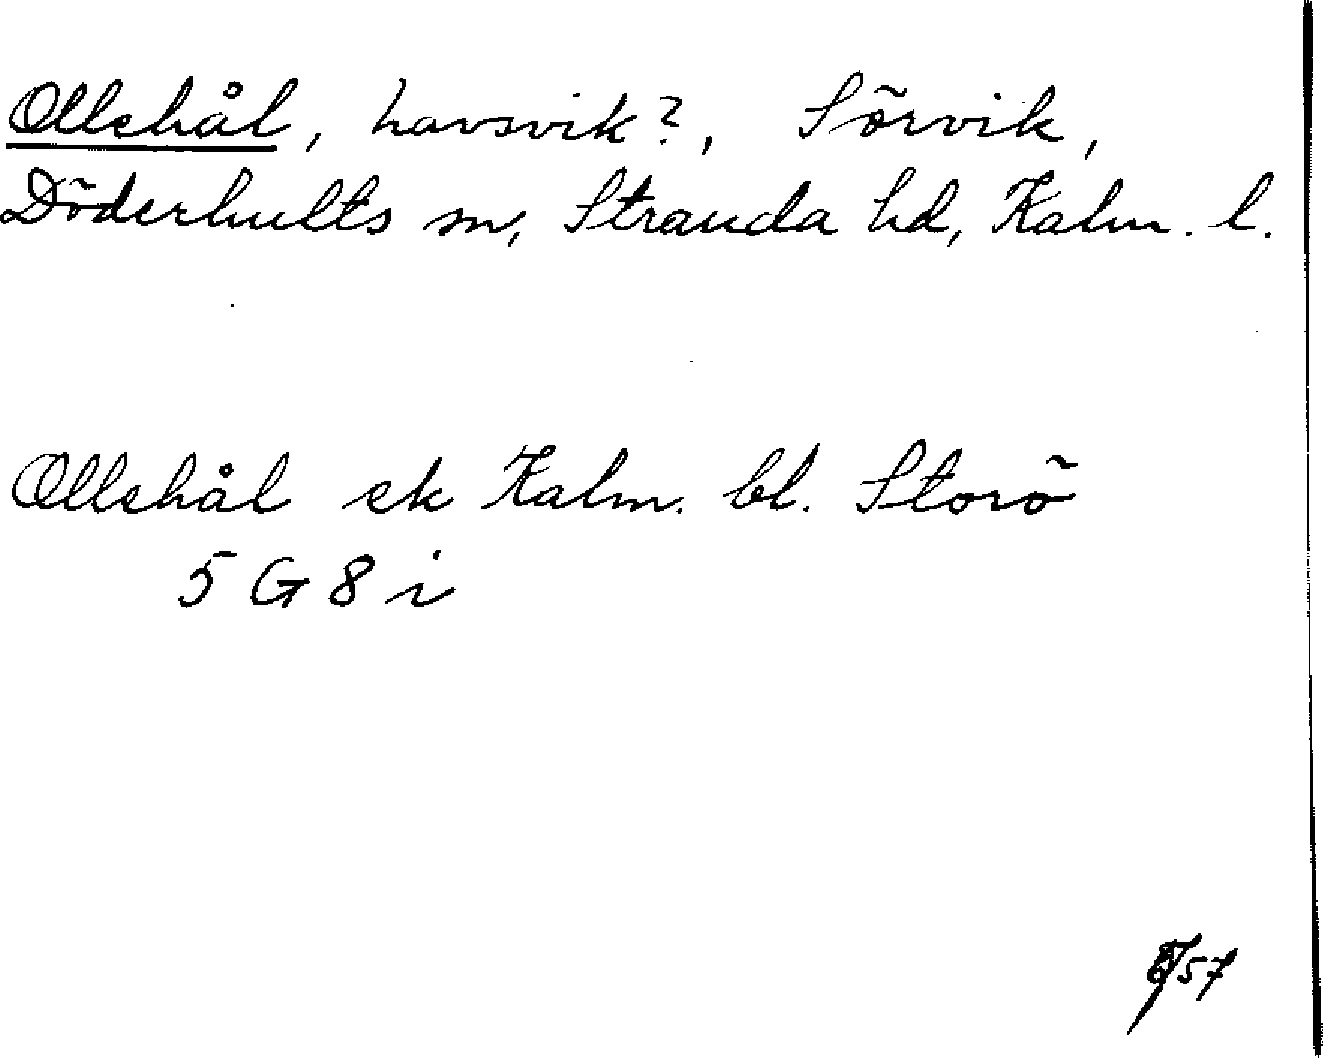 Ollehål, havsvik?, Sörvik,
Döderhults sn, Stranda hd, Kalm. l.
Ollehål ek Kalm. bl. Storö
5 G 8 i